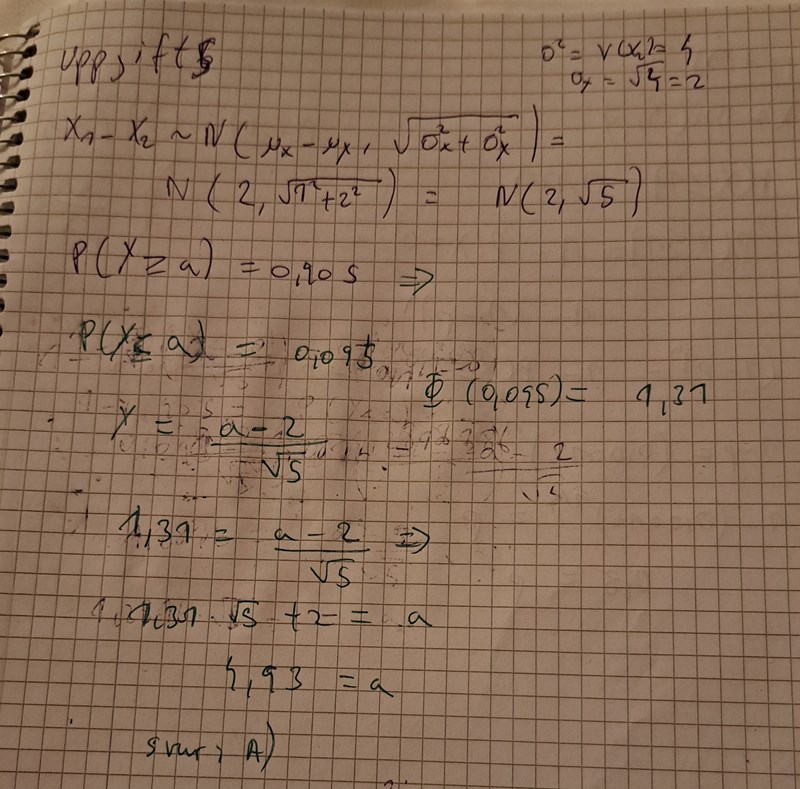 Uppgift 5
σ² = V(X₂) = 4
σₓ = √4 = 2
X₁ - X₂ ~ N(μₓ - μₓ, √(σ²ₓ + σ²ₓ)) =
N(2, √(1² + 2²)) = N(2, √5)
P(X ≥ a) = 0,905 ⇒
P(X ≤ a) = 0,095
Φ(0,095) = 1,31
X = (a - 2)/√5
1,31 = (a - 2)/√5 ⇒
1,31 · √5 + 2 = a
4,93 = a
svar: A)